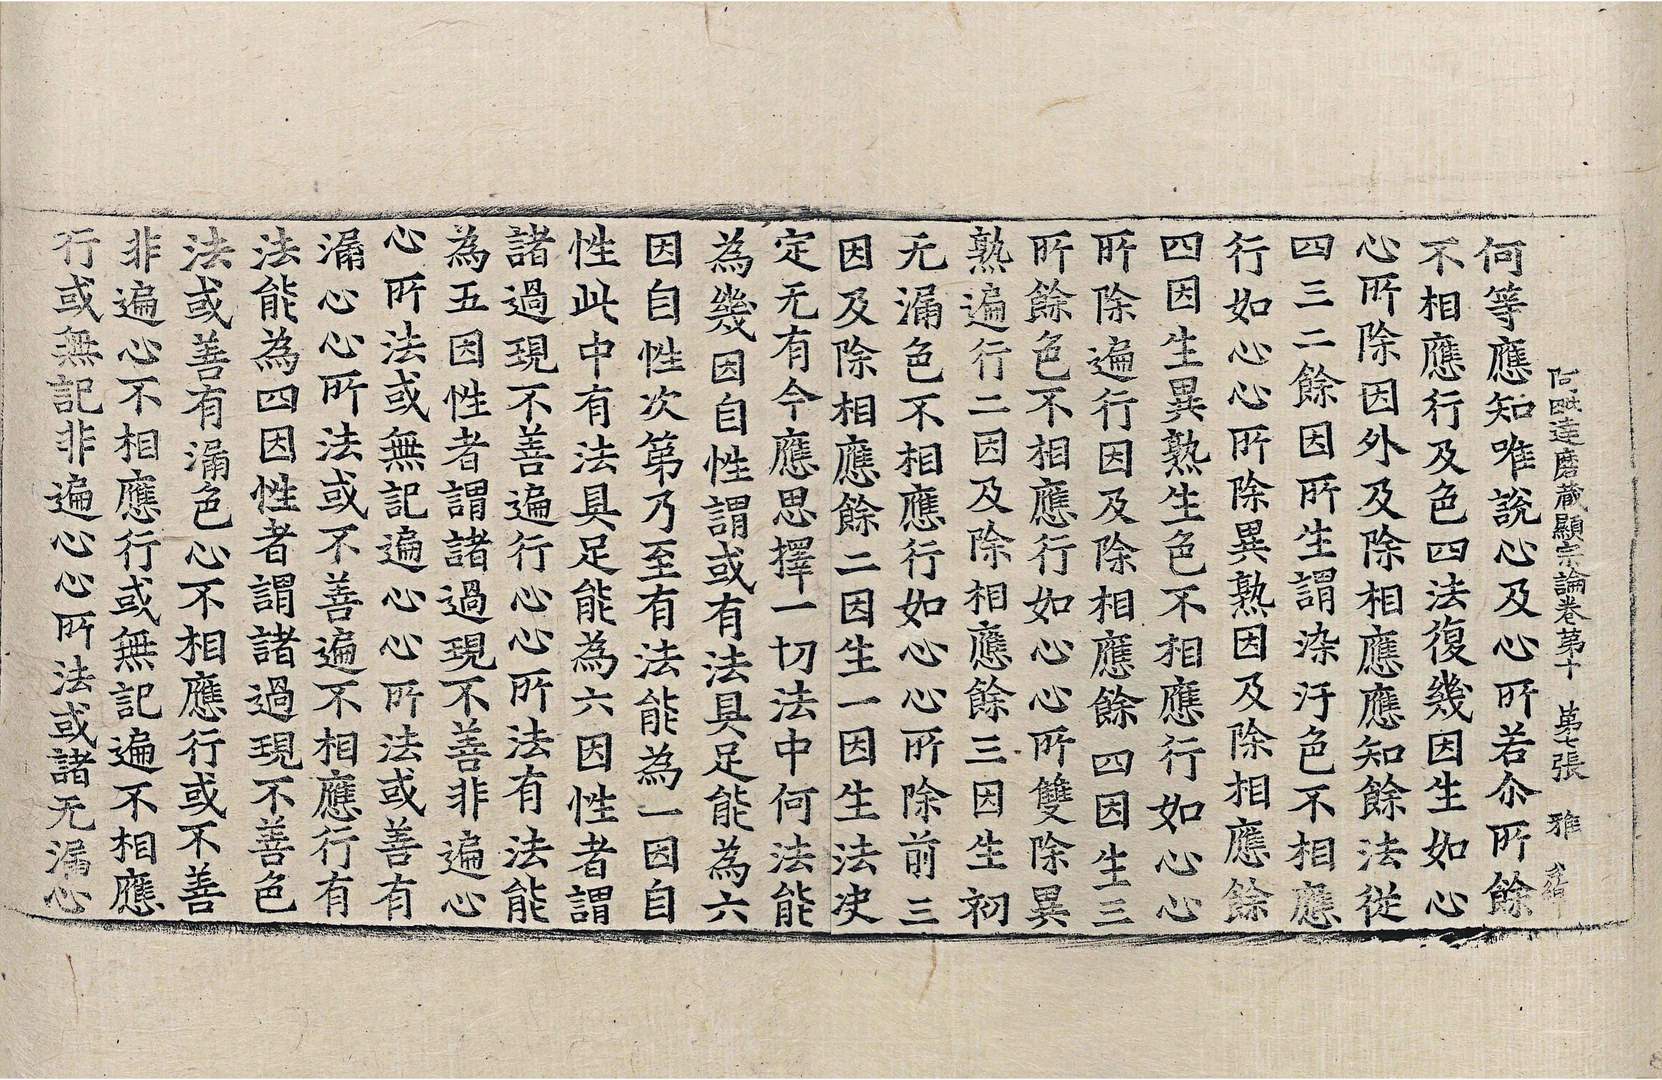 阿毗達磨蔵顯宗論卷第十 第七張 雅
何等應知唯說心及心所若尒所餘
不相應行及色四法復幾因生如心
心所除因外及除相應應知餘法從
四三二餘因所生謂染汙色不相應
行如心心所除異熟因及除相應餘
四因生異熟生色不相應行如心心
所除遍行因及除相應餘四因生三
所餘色不相應行如心心所雙除異
熟遍行二因及除相應餘三因生初
无漏色不相應行如心心所除前三
因及除相應餘二因生一因生法决
定无有今應思擇一切法中何法能
為幾因自性謂或有法具足能為六
因自性次第乃至有法能為一因自
性此中有法具足能為六因性者謂
諸過現不善遍行心心所法有法能
為五因性者謂諸過現不善非遍心
心所法或無記遍心心所法或善有
漏心心所法或不善遍不相應行有
法能為四因性者謂諸過現不善色
法或善有漏色心不相應行或不善
非遍心不相應行或無記遍不相應
行或無記非遍心心所法或諸无漏心